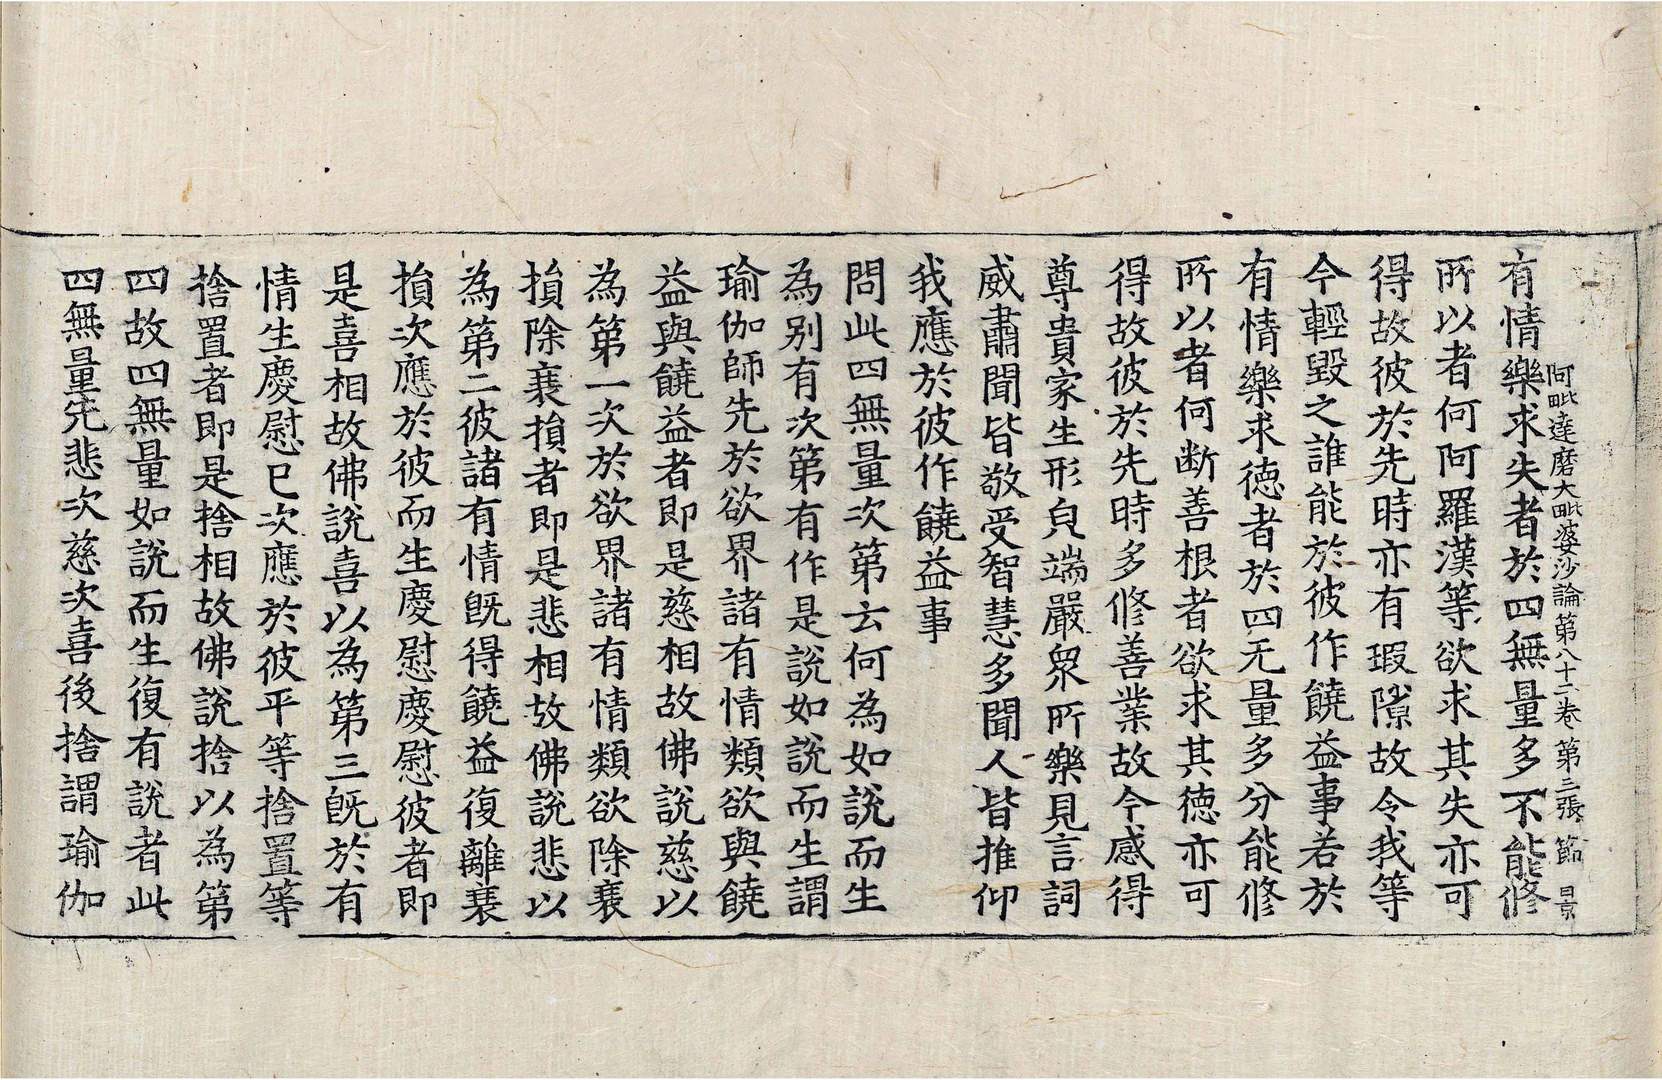 阿毗達磨大毗婆沙論第八十二卷 第三張 節 景
有情樂求失者於四無量多不能修
所以者何阿羅漢等欲求其失亦可
得故彼於先時亦有瑕隙故令我等
今輕毀之誰能於彼作饒益事若於
有情樂求德者於四无量多分能修
所以者何斷善根者欲求其德亦可
得故彼於先時多修善業故今感得
尊貴家生形皃端嚴衆所樂見言詞
威肅聞皆敬受智慧多聞人皆推仰
我應於彼作饒益事
問此四無量次第云何為如說而生
為别有次第有作是說如說而生謂
瑜伽師先於欲界諸有情類欲與饒
益與饒益者即是慈相故佛說慈以
為第一次於欲界諸有情類欲除衰
損除衰損者即是悲相故佛說悲以
為第二彼諸有情旣得饒益復離衰
損次應於彼而生慶慰慶慰彼者即
是喜相故佛說喜以為第三旣於有
情生慶慰已次應於彼平等捨置等
捨置者即是捨相故佛說捨以為第
四故四無量如說而生復有說者此
四無量先悲次慈次喜後捨謂瑜伽